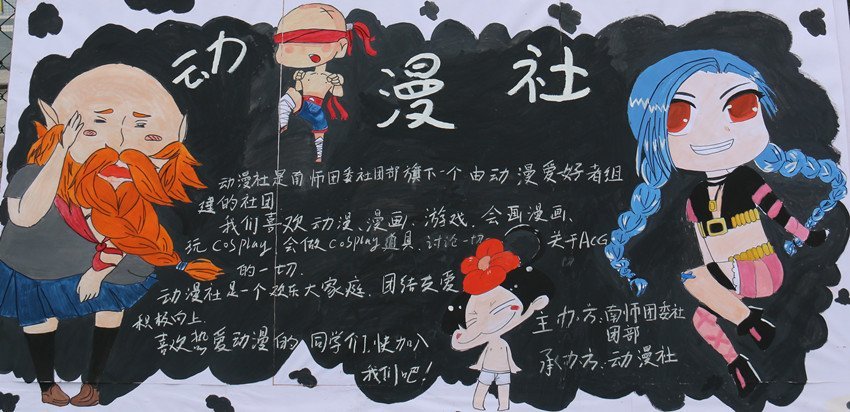 动漫社
动漫社是南师团委社团部旗下一个由动漫爱好者组
建的社团
我们喜欢动漫、漫画、游戏、会画漫画、
玩cosplay、会做cosplay道具、讨论一切 关于ACG
的一切.
动漫社是一个欢乐大家庭、团结友爱
积极向上
喜欢热爱动漫的同学们,快加入
我们吧!
主办方:南师团委社
团部
承办方:动漫社